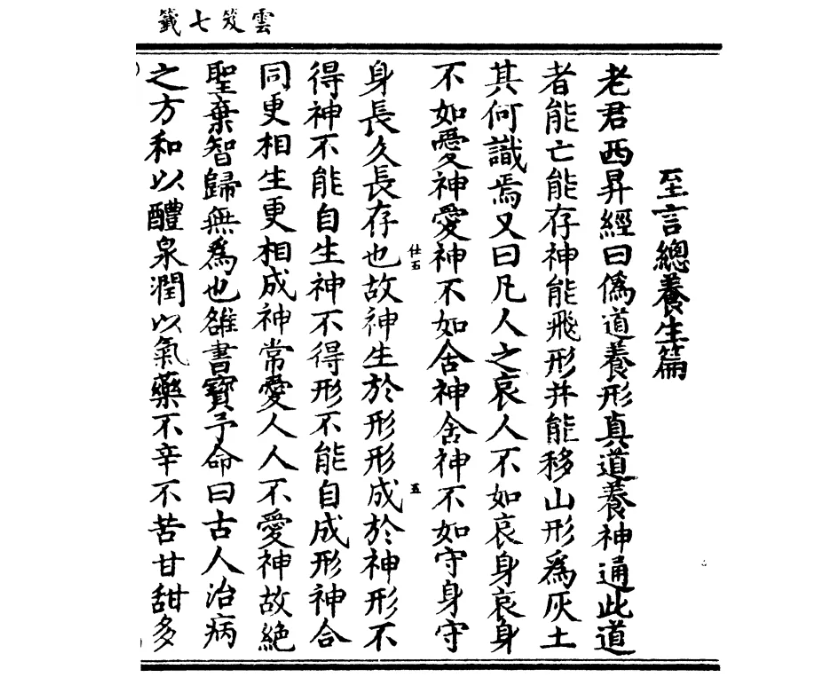 雲笈七籤
至言總養生篇
老君西昇經曰偽道養形真道養神通此道
者能亡能存神能飛形并能移山形爲灰土
其何識焉又曰凡人之哀人不如哀身哀身
不如愛神愛神不如舍神舍神不如守身守
仕五
五
身長久長存也故神生於形形成於神形不
得神不能自生神不得形不能自成形神合
同更相生更相成神常愛人人不愛神故絶
聖棄智歸無爲也雒書寶予命曰古人治病
之方和以醴泉潤以氣藥不辛不苦甘甜多